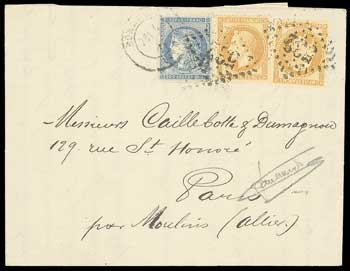 Messieurs Caillebotte & Dumagnou
129, rue St Honoré
Paris
par Moulins (Allier).